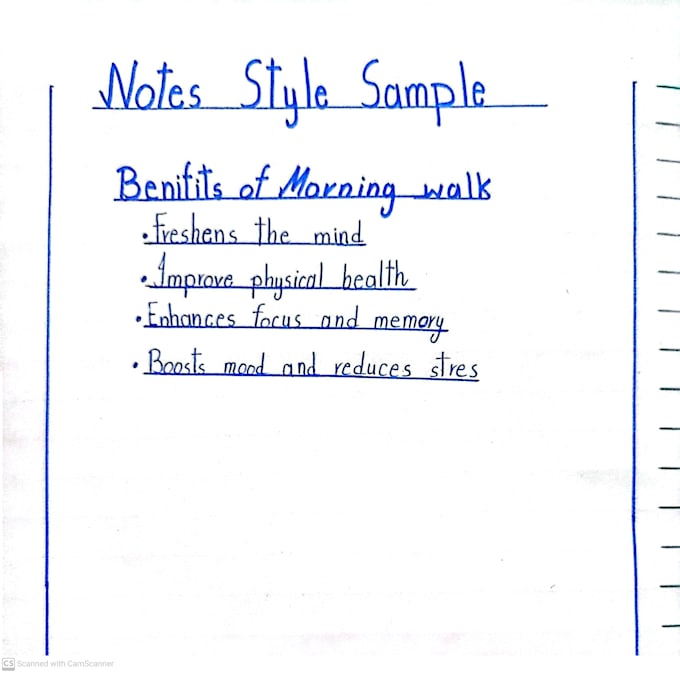 Notes Style Sample
Benifits of Morning walk
• Freshens the mind
• Improve physical health
• Enhances focus and memory
• Boosts mood and reduces stres
CS Scanned with CamScanner